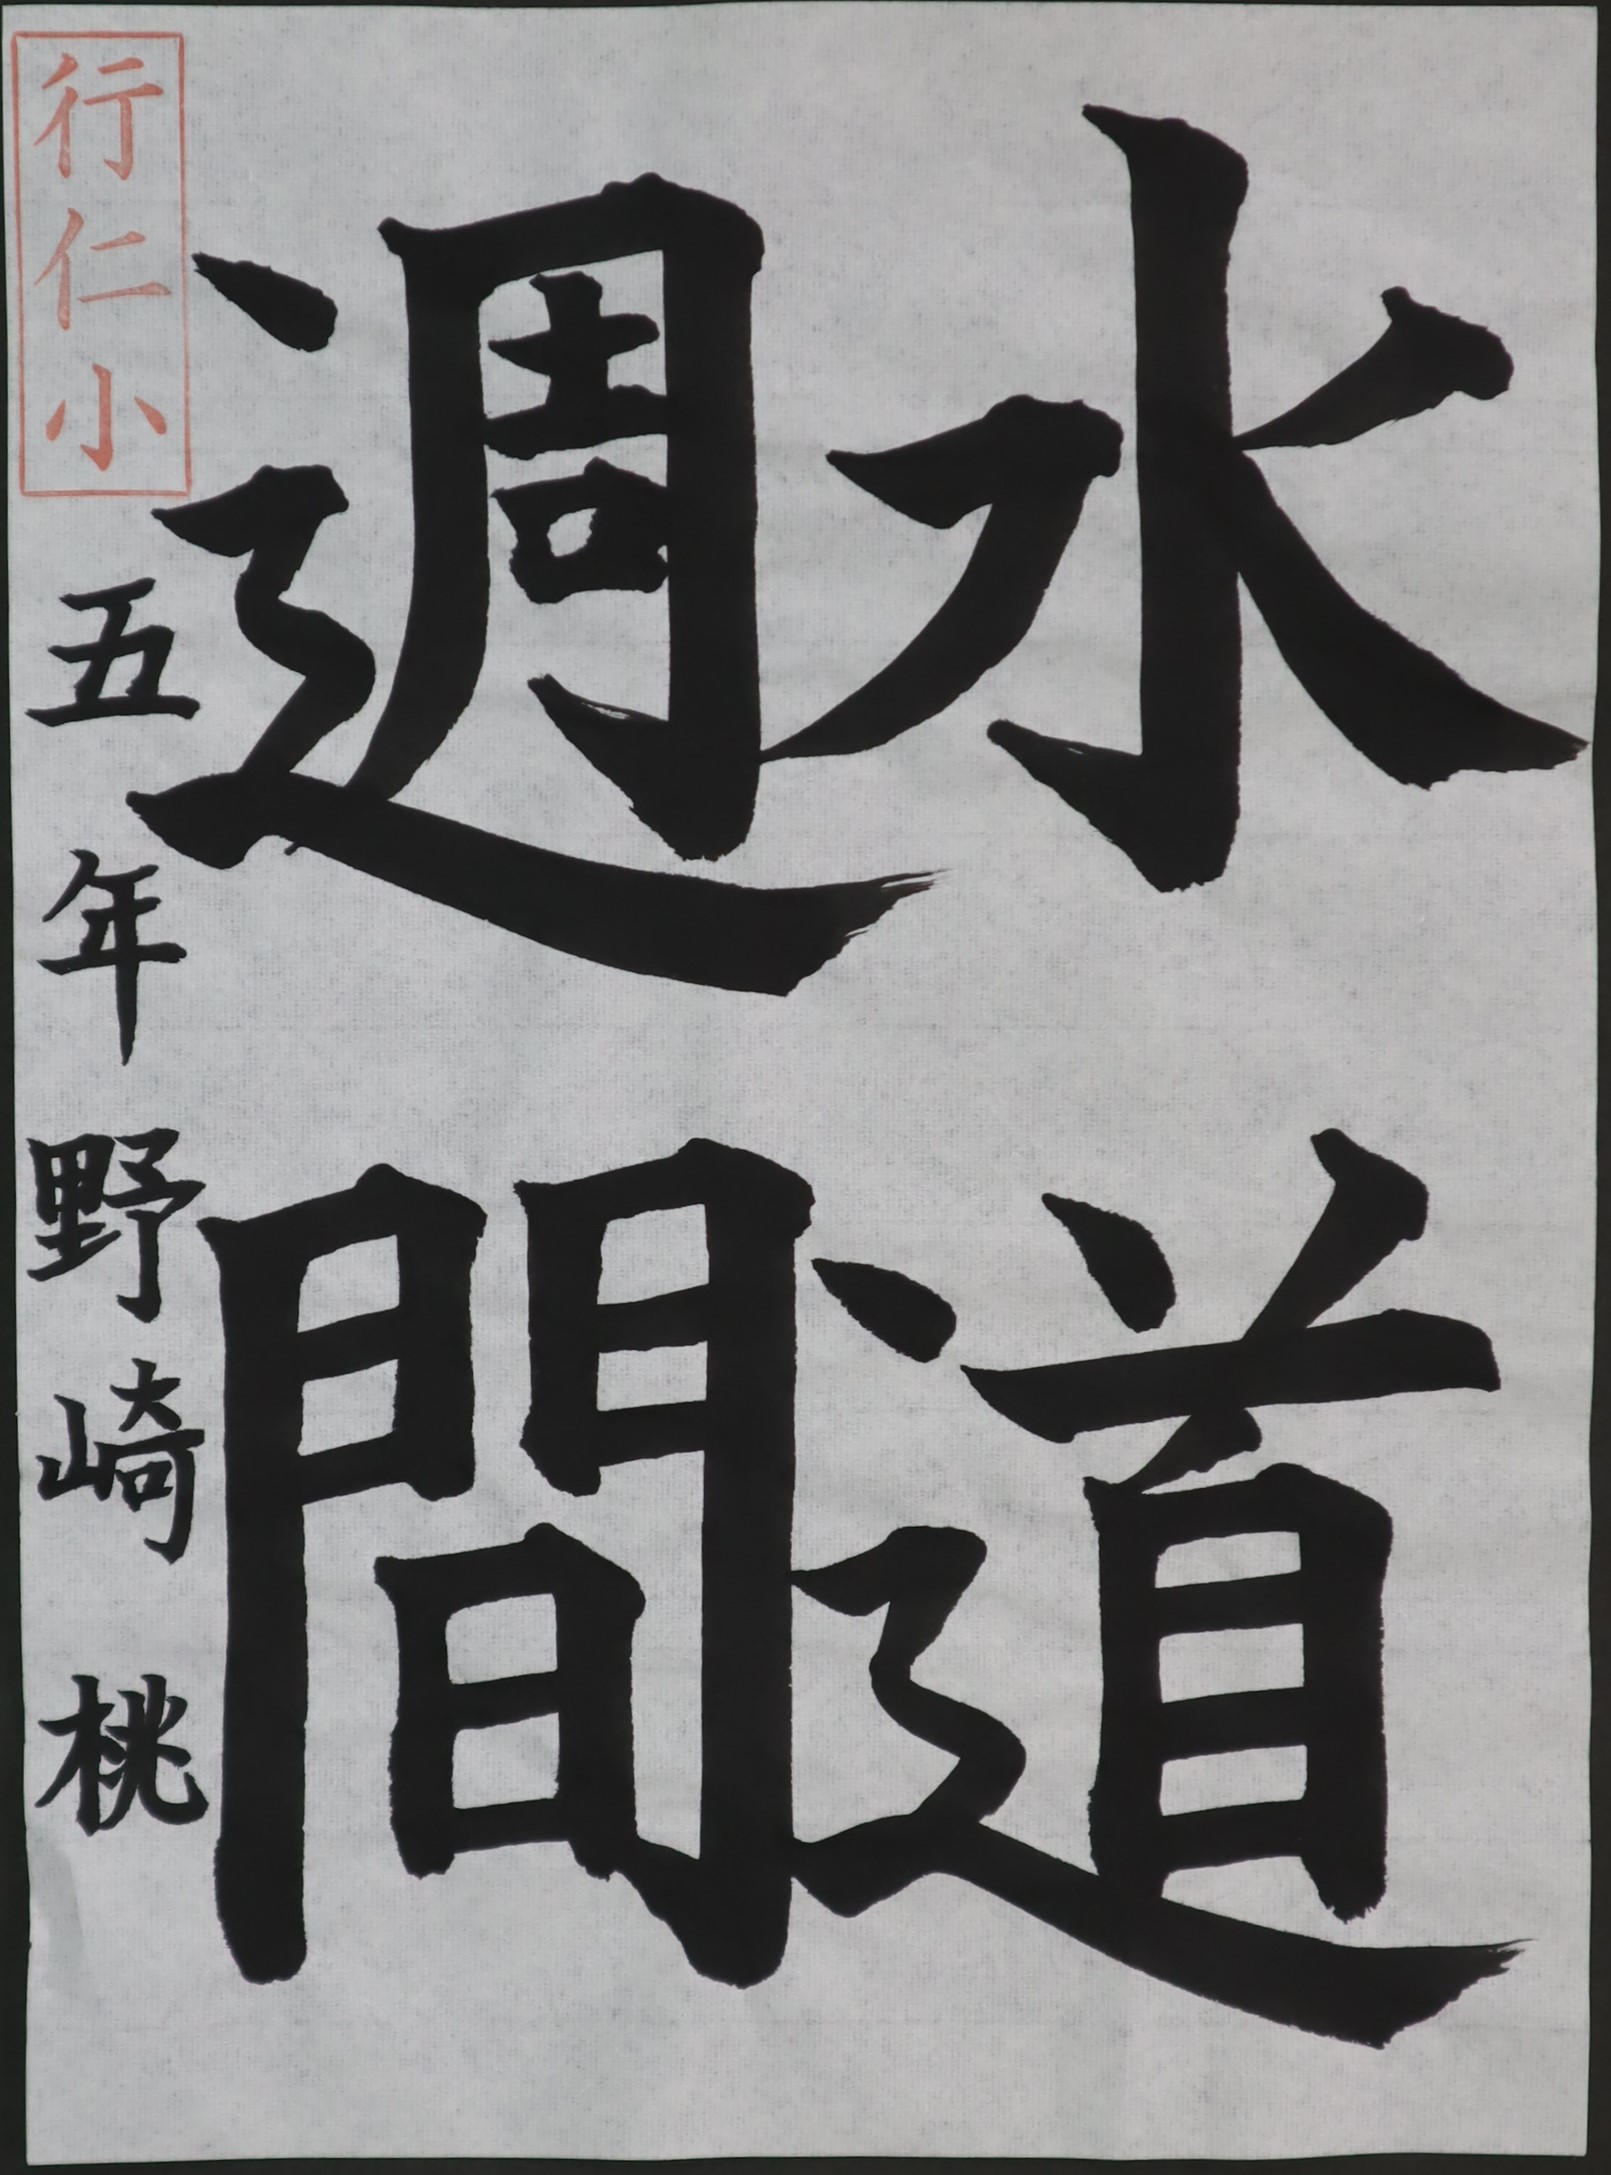 水道
週間
行仁小
五年 野崎 桃